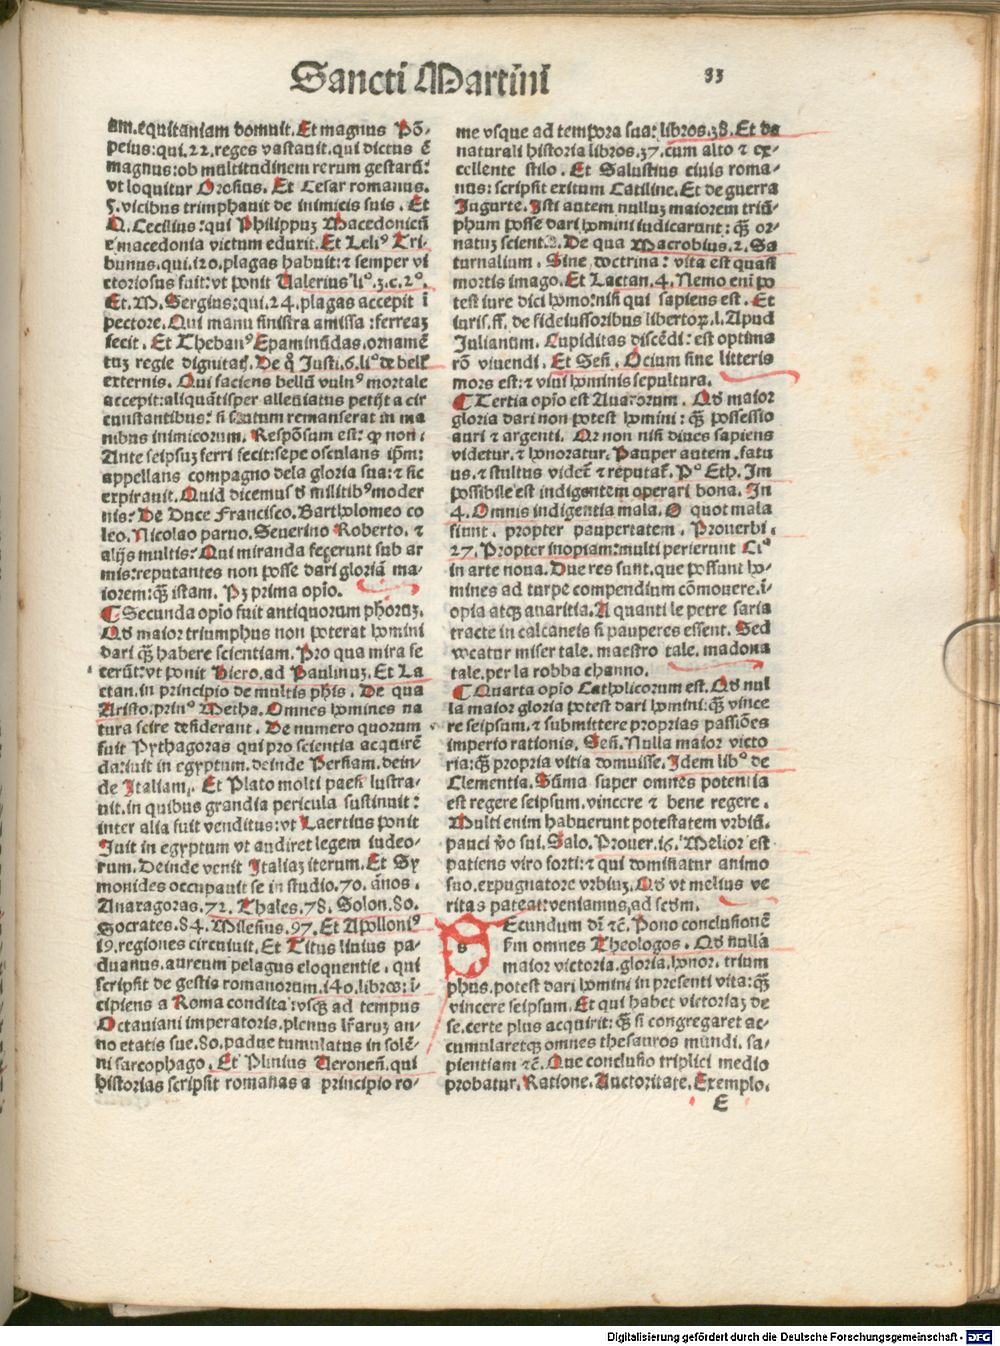 Sancti Martini
33
am.equitaniam domuit. Et magnus Põ-
peius: qui .22. reges vastauit. qui dictus ẽ
magnus: ob multitudinem rerum gestarũ:
vt loquitur Orosius. Et Cesar romanus.
5. vicibus trimphauit de inimicis suis. Et
Q. Cecilius: qui Philippuʒ Macedonicũ
e macedonia victum eduxit. Et Leliꝰ Tri-
bunus. qui .120. plagas habuit: ⁊ semper vi
ctoriosus fuit: vt ponit Ualerius liº.3.c.2º.
Et. M. Sergius: qui .24. plagas accepit ĩ
pectore. Qui manu sinistra amissa: ferreaʒ
fecit. Et Thebanꝰ Epaminũdas. ornamẽ
tuʒ regie dignitatꝭ. De q̊ Justi.6. liº de bellꝭ
externis. Qui faciens bellũ vulnꝰ mortale
accepit: aliquãtisper alleuiatus petijt a cir
cunstantibus: si scutum remanserat in ma
nibus inimicorum. Respõsum est: ꝙ non:
Ante seipsuʒ ferri fecit: sepe osculans ip̃m:
appellans compagno dela gloria sua: ⁊ sic
expirauit. Quid dicemus ð militibꝰ moder
nis: De Duce Francisco. Bartholomeo co
leo. Nicolao paruo. Seuerino Roberto. ⁊
alijs multis: Qui miranda fecerunt sub ar
mis: reputantes non posse dari gloriã ma-
iorem: qᷓꝫ istam. Pʒ prima opĩo.
¶ Secunda opĩo fuit antiquorum phoruʒ.
Qð maior triumphus non poterat homini
dari qᷓꝫ habere scientiam. Pro qua mira fe
cerũt: vt ponit Hiero. ad Paulinuʒ. Et La
ctan. in principio de multis phĩs. De qua
Aristo. prinº Metha. Omnes homines na
tura scire desiderant. De numero quorum
fuit Pythagoras qui pro scientia acquirẽ
da: iuit in egyptum. deinde Persiam. dein-
de Italiam. Et Plato molti paesi lustra-
uit. in quibus grandia pericula sustinuit:
inter alia fuit venditus: vt Laertius ponit
Iuit in egyptum vt audiret legem iudeo-
rum. Deinde venit Italiaʒ iterum. Et Sy
monides occupauit se in studio .70. ãnos.
Anaxagoras .72. Thales .78. Solon .80.
Socrates .84. Milesius .97. Et Apolloniꝰ
19. regiones circuiuit. Et Titus liuius pa-
duanus. aureum pelagus eloquentie. qui
scripsit de gestis romanorum .140. libros: ĩ-
cipiens a Roma condita: vsqꝫ ad tempus
Octauiani imperatoris. plenus lr̃aruʒ an-
no etatis sue .80. padue tumulatus in solẽ-
ni sarcophago. Et Plinius Ueroneñ. qui
historias scripsit romanas a principio ro-
me vsque ad tempora sua: libros .38. Et de
naturali historia libros .37. cum alto ⁊ ex-
cellente stilo. Et Salustius ciuis roma-
nus: scripsit exitum Catiline. Et de guerra
Jugurte. Isti autem nulluʒ maiorem triũ-
phum posse dari homini iudicarunt: qᷓꝫ or-
natuʒ scient. De qua Macrobius.2. Sa
turnalium. Sine doctrina: vita est quasi
mortis imago. Et Lactan.4. Nemo enĩ po
test iure dici homo: nisi qui sapiens est. Et
iuris. ff. de fideiussoribus libertoꝝ. l. Apud
Julianum. Cupiditas discẽdi: est optima
rõ viuendi. Et Señ. Ocium sine litteris
mors est: ⁊ viui hominis sepultura.
¶ Tertia opĩo est Auarorum. Qð maior
gloria dari non potest homini: qᷓꝫ possessio
auri ⁊ argenti. Qr non nisi diues sapiens
videtur. ⁊ honoratur. Pauper autem .fatu
us. ⁊ stultus videt̃ ⁊ reputat̃. Pº Eth. Im
possibile est indigentem operari bona. In
4. Omnis indigentia mala. O quot mala
fiunt. propter paupertatem. Prouerbi.
27. Propter inopiam: multi perierunt Ciº
in arte noua. Due res sunt. que possunt ho-
mines ad turpe compendium cõmouere. ĩ-
opia atqꝫ auaritia. A quanti le petre saria
tracte in calcaneis si pauperes essent. Sed
vocatur miser tale. maestro tale. madona
tale. per la robba channo.
¶ Quarta opĩo Catholicorum est. Qð nul
la maior gloria potest dari homini: qᷓꝫ vince
re seipsum. ⁊ submittere proprias passiões
imperio rationis. Señ. Nulla maior victo
ria: qᷓꝫ propria vitia domuisse. Idem libº de
Clementia. Sũma super omnes potentia
est regere seipsum. vincere ⁊ bene regere.
Multi enim habuerunt potestatem vrbiũ.
pauci vo sui. Salo. Prouer.16. Melior est
patiens viro forti: ⁊ qui dominatur animo
suo. expugnatore vrbiuʒ. Qð vt melius ve
ritas pateat: veniamus ad scðm.
Secundum dĩ ⁊c̃. Pono conclusionẽ
fm omnes Theologos. Qð nulla
maior victoria. gloria. honor. trium
phus. potest dari homini in presenti vita: qᷓꝫ
vincere seipsum. Et qui habet victoriaʒ de
se. certe plus acquirit: qᷓꝫ si congregaret ac-
cumularetqꝫ omnes thesauros mundi. sa-
pientiam ⁊c̃. Que conclusio triplici medio
probatur. Ratione. Auctoritate. Exemplo.
E
Digitalisierung gefördert durch die Deutsche Forschungsgemeinschaft - DFG